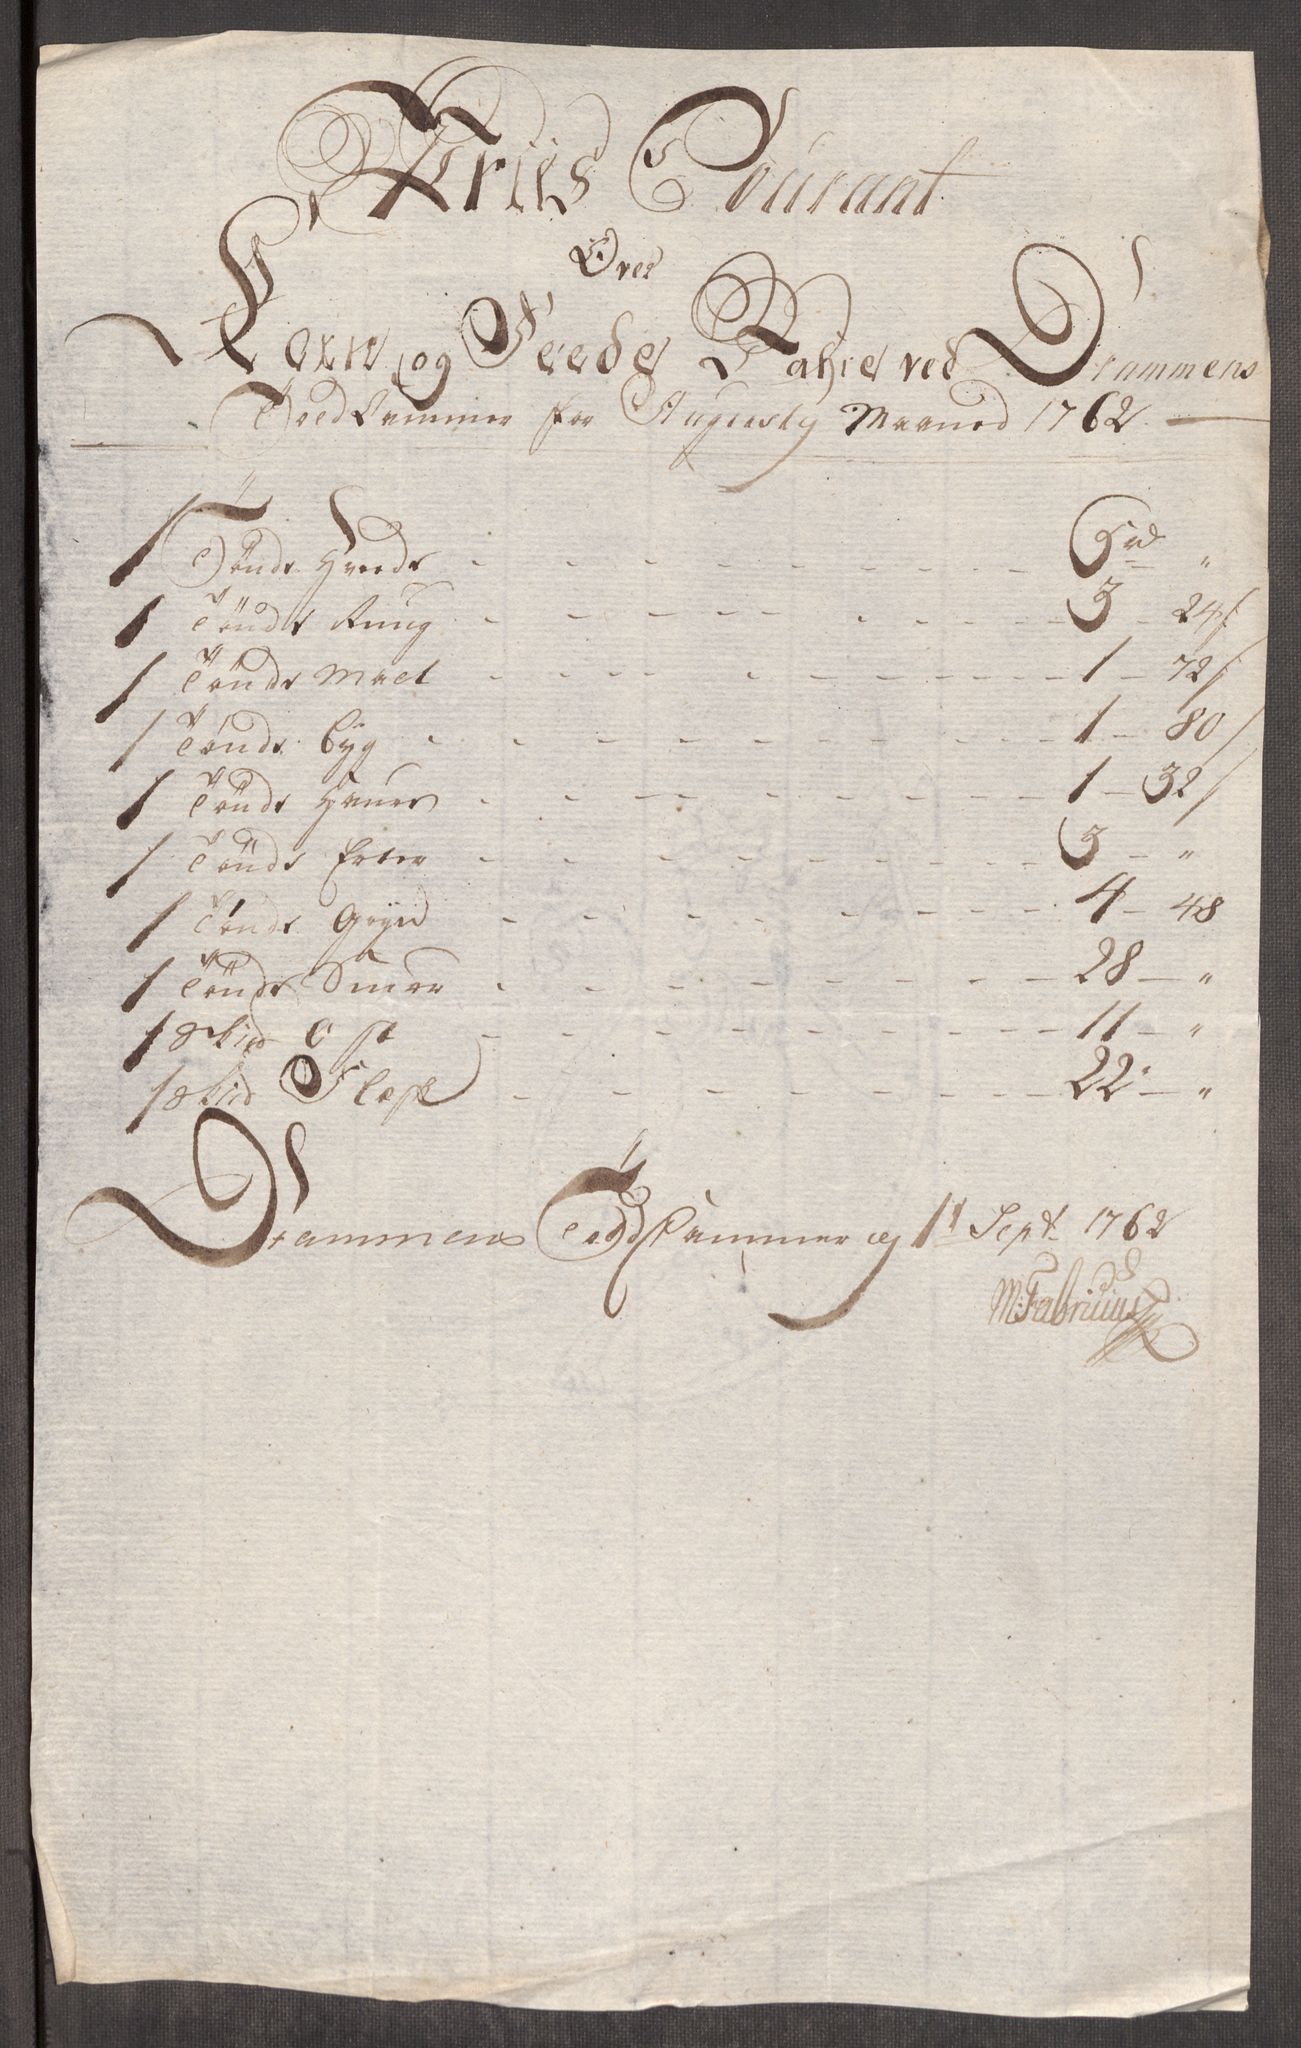 Priis Courant
Over
Korn og Feede Vahre ved Drammens
Toldkammer for Augusty Maaned 1762
1 Tönde Hvede - - - 5 rd "
1 Tönde Rug - - - 3 - 24 s
1 Tönde Mael - - - 1 - 72 s
1 Tönde Byg - - - 1 - 80 s
1 Tönde Haver - - - 1 - 32 s
1 Tönde Erter - - - 3 - "
1 Tönde Gryn - - - 4 - 48
1 Tönde Smør - - - 28 - "
1 Skid Ost - - - 11 - "
1 Skid Flesk - - - 22 - "
Drammens Toldkammer 1t Sept. 1762
M: Fabricius